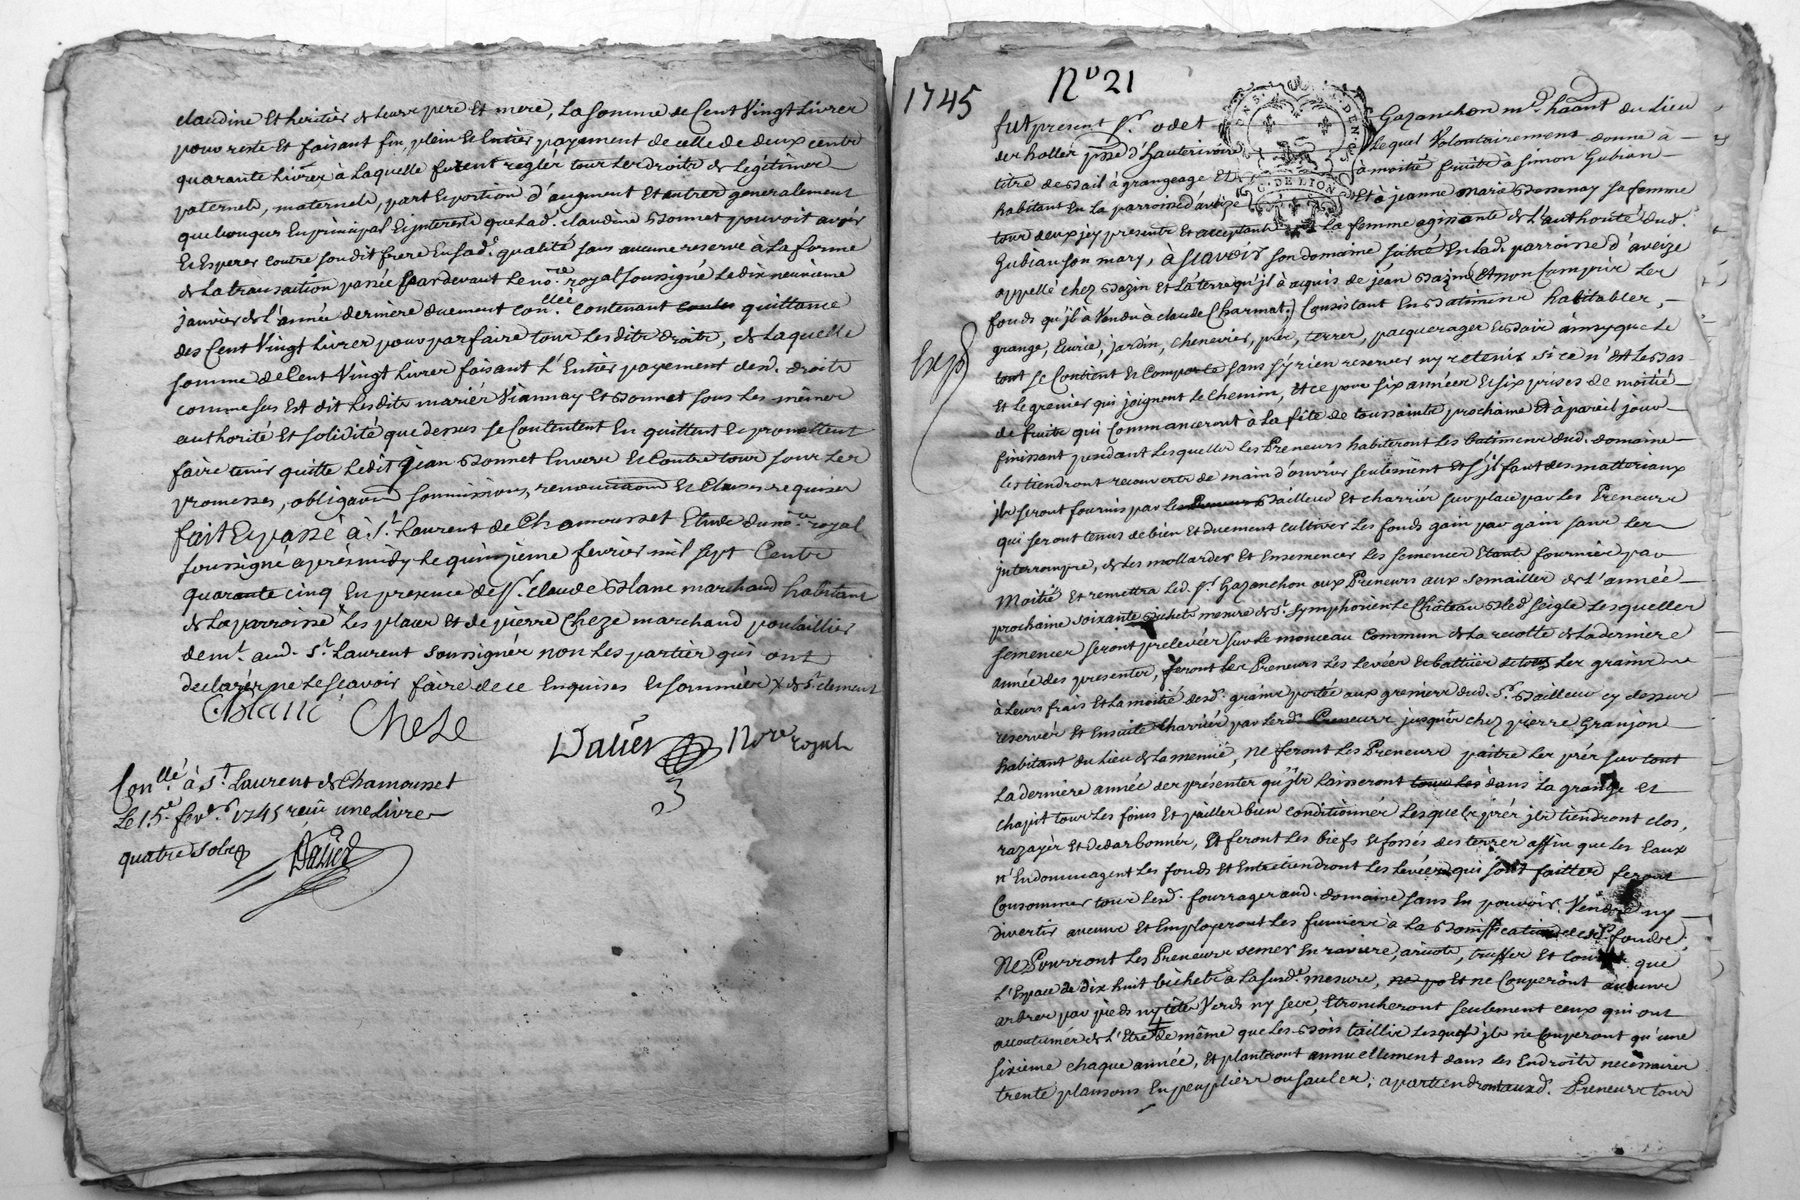 claudine Et heritier de leurs pere Et mere, La somme de Cent Vingt Livres
pour reste Et faisant fin, plein Et Entier payement de celle de deux cents
quarante Livres à Laquelle furent regler tous Les droits de Legitime
paternels, maternels, part Et portion d'augment Et autres generalement
quelconques En principal Et interests que Lad. claudine Bonnet pouvoit avoir
Et Esperer contre son dit frere En sad. qualité sans aucune reserve à La forme
de La transaction passée pardevant Le no.re royal soussigné Le dix neuvieme
janvier de L'année derniere duement con.llée Contenant quittance
des Cent Vingt Livres pour parfaire tous Lesdits droits, de Laquelle
somme de Cent Vingt Livres faisant L'Entier payement desd. droits
comme sus Est dit Lesdits mariés Viannay Et Bonnet sous Les mêmes
authorité Et solidité que dessus se Contentent En quittent Et promettent
faire tenir quitte Ledit Jean Bonnet Envers Et Contre tous sous Les
promesses, obligaon soumissions, renonciaons Et Clauses requises
fait Et passé à S.t Laurent de Chamousset Etude du no.re royal
soussigné après midy Le quinzieme fevrier mil sept Cents
quarante cinq En presence de S.r Claude Blanc marchand habitant
de La parroisse Les places Et de pierre Cheze marchand poulaillier
dem.t aud. S.t Laurent soussignés non Les parties qui ont
declarés ne Le sçavoir faire de ce Enquises Et sommées X de S.t clement
C. Blanc Cheze
Dalier No.re royal
Con.llé à S.t Laurent de Chamousset
Le 15.e fev.r 1745 reçu une Livre
quatre sols
Dalier
1745
N.o 21
fut present S.r odet Gazanchon m.d haant du Lieu
des holles p.sse d'hauterivoire Lequel Volontairement donne à
titre de Bail à grangeage Et à moitié fruits à Simon Gubian
habitant En La parroisse d'aveize Et à jeanne marie Bessenay sa femme
tous deux icy presents Et acceptants La femme agissante de L'authorité dud.
Gubian son mary, à sçavoir son domaine situé En Lad. parroisse d'aveize
appellé chez Bazin Et La terre qu'il à acquis de jean Bazin Et non Compris Les
fonds qu'il à Vendu à claude Charmat, Consistant En Batiments habitables,
grange, Ecurie, jardin, cheneviers, prés, terres, pacquerages Et bois ainsy que Le
tout se Contient Et Comporte sans s'y rien reserver ny retenir si ce n'est Le Bas
Et Le grenier qui joignent Le chemin, Et ce pour six années Et six prises de moitié
de fruits qui Commanceront à La fête de toussaints prochaine Et à pareil jour
finissant pendant Lesquelles Les Preneurs habiteront Les batiments dud. domaine
Les tiendront recouverts de main d'ouvrier seulement Et s'jl faut des matteriaux
jls seront fournis par Bailleur Et charriés sur place par Les Preneurs
qui seront tenus de bien Et duement cultiver Les fonds gain par gain sans Les
jnterrompre, de Les mollardes Et Ensemencer Les semences Etants fournies par
Moitié Et remettra Led. S.r Gazanchon aux Preneurs aux semailles de L'année
prochaine soixante bichets mesure de S.t Symphorien Le Château Bled seigle Lesquelles
semences seront prelevées sur Le monceau Commun de La recolte de La derniere
année des presentes, feront Les Preneurs Les Levées Et battües de tous Les grains
à Leurs frais Et La moitié desd. grains portée aux greniers dud. S.r Bailleur cy dessus
reservés Et Ensuite charriés par Lesd. Preneurs jusques chez pierre Granjon
habitant du Lieu de La menüe, ne feront Les Preneurs paître Les prés sur tout
La derniere année des présentes qu'jls Laisseront dans La grange Et
chapit tous Les foins Et pailles bien Conditionnés Lesquels prés jls tiendront clos,
razayés Et desarbonnés, Et feront Les biefs Et fossés des terres affin que Les Eaux
n'Endommagent Les fonds Et Entretiendront Les Levées qui sont faittes feront
Consommer tous Lesd. fourrages aud. domaine sans En pouvoir Vendre ny
divertir aucuns Et Employeront Les fumiers à La Bonifficationdesd. fonds,
Ne Pourront Les Preneurs semer En ravieres, avoine, truffes Et que
L'Espace de dix huit bichets à La susd.e mesure, Et ne Couperont aucuns
arbres par pieds ny têtes Verds ny secs, Etroncheront seulement ceux qui ont
accoutumés de L'Etre de même que Les Bois taillis Lesquels jls ne Couperont qu'une
sixieme chaque année, Et planteront annuellement dans Les Endroits necessaires
trente plansons En peupliers ou saules, apartiendront auxd. Preneurs tous